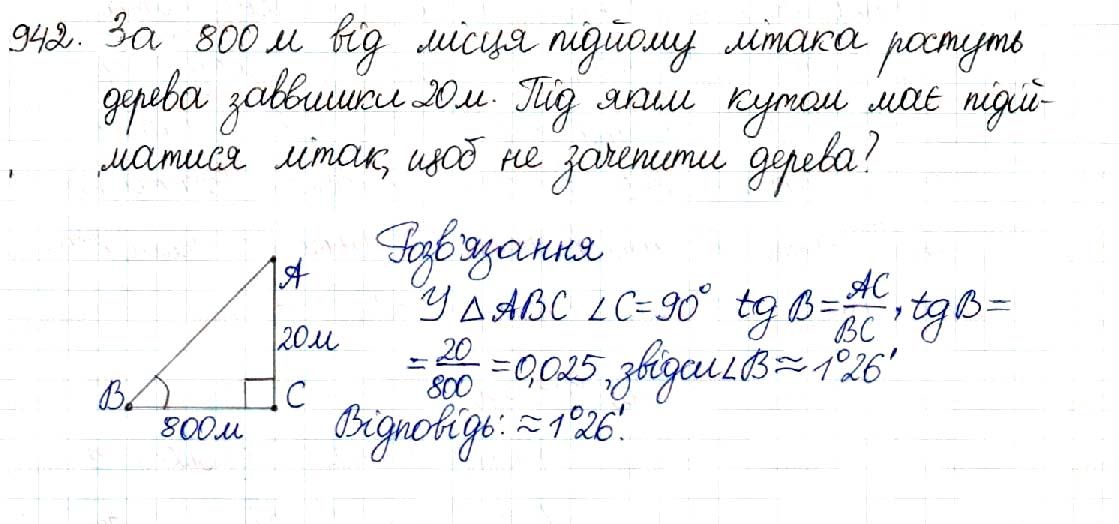 942. За 800 м від місця підйому літака ростуть
дерева заввишки 20 м. Під яким кутом має підій-
матися літак, щоб не зачепити дерева?
Розв'язання
У △ABC ∠C=90° tg B = AC/BC, tg B =
= 20/800 = 0,025, звідси ∠B ≈ 1°26'
Відповідь: ≈ 1°26'.
A
20 м
B
C
800 м